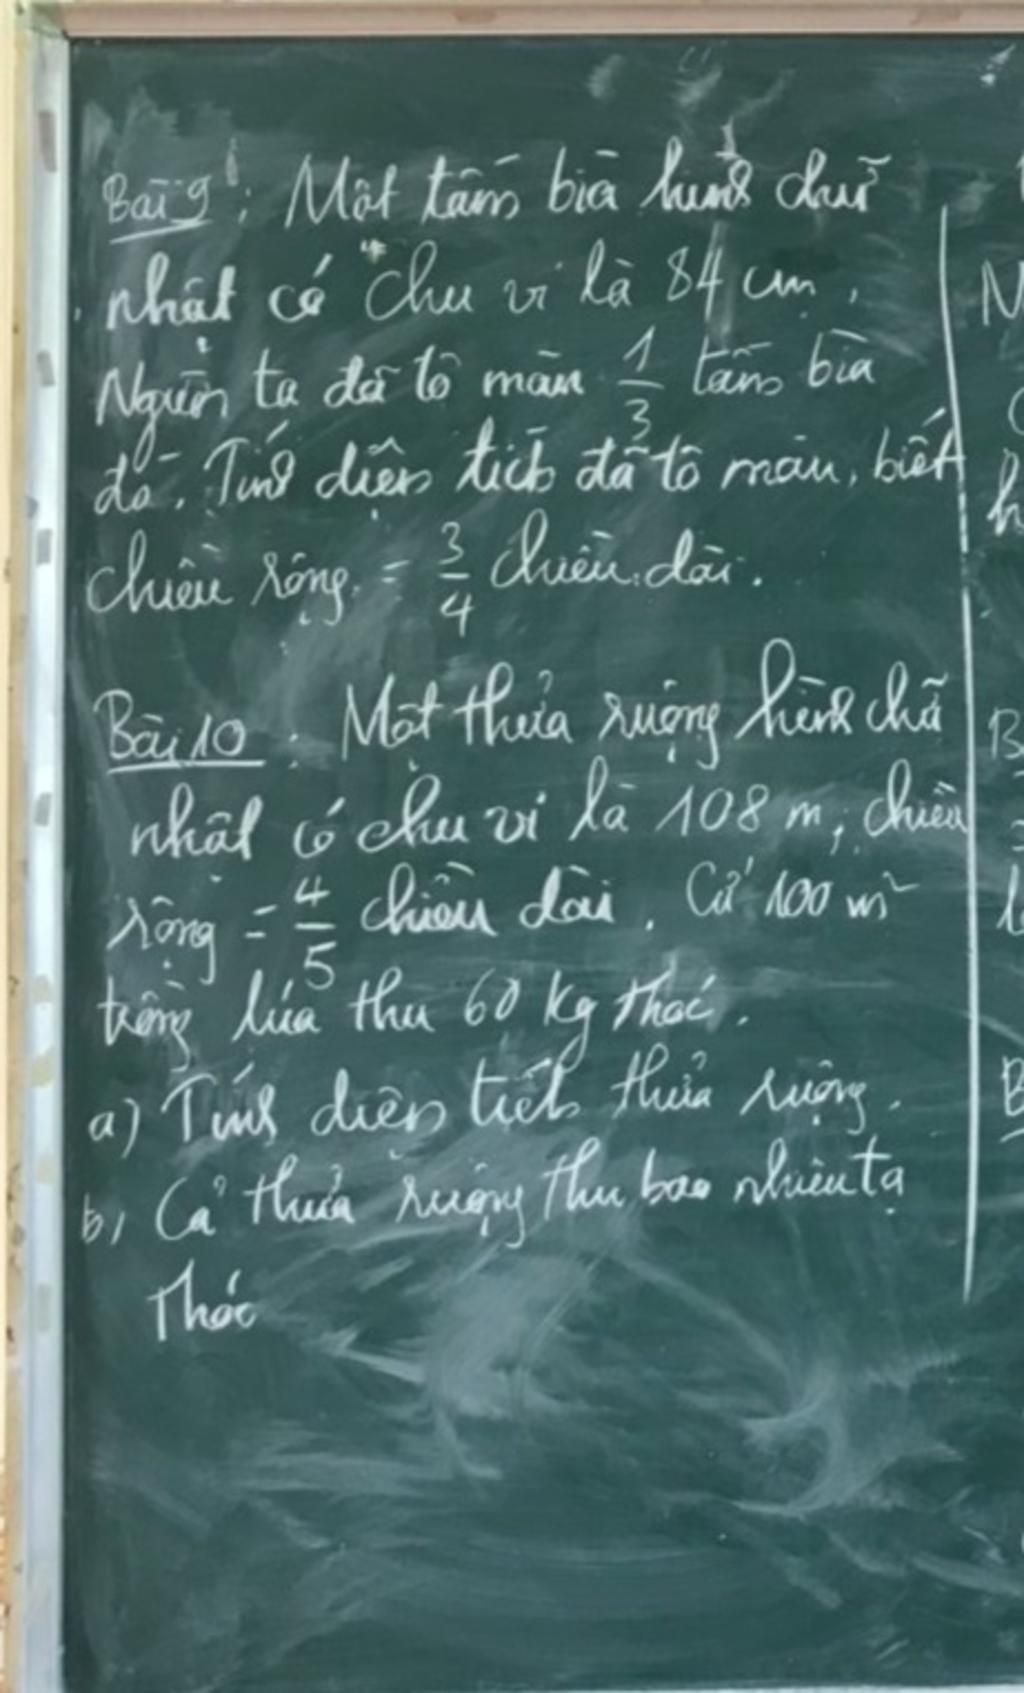 Bài 9: Một tấm bìa hình chữ
nhật có chu vi là 84 cm.
Người ta đã tô màu 1/3 tấm bìa
đó. Tính diện tích đã tô màu, biết
chiều rộng = 3/4 chiều dài.
Bài 10: Một thửa ruộng hình chữ
nhật có chu vi là 108 m, chiều
rộng = 4/5 chiều dài. Cứ 100 m²
trồng lúa thu 60 kg thóc.
a) Tính diện tích thửa ruộng.
b, Cả thửa ruộng thu bao nhiêu tạ
Thóc